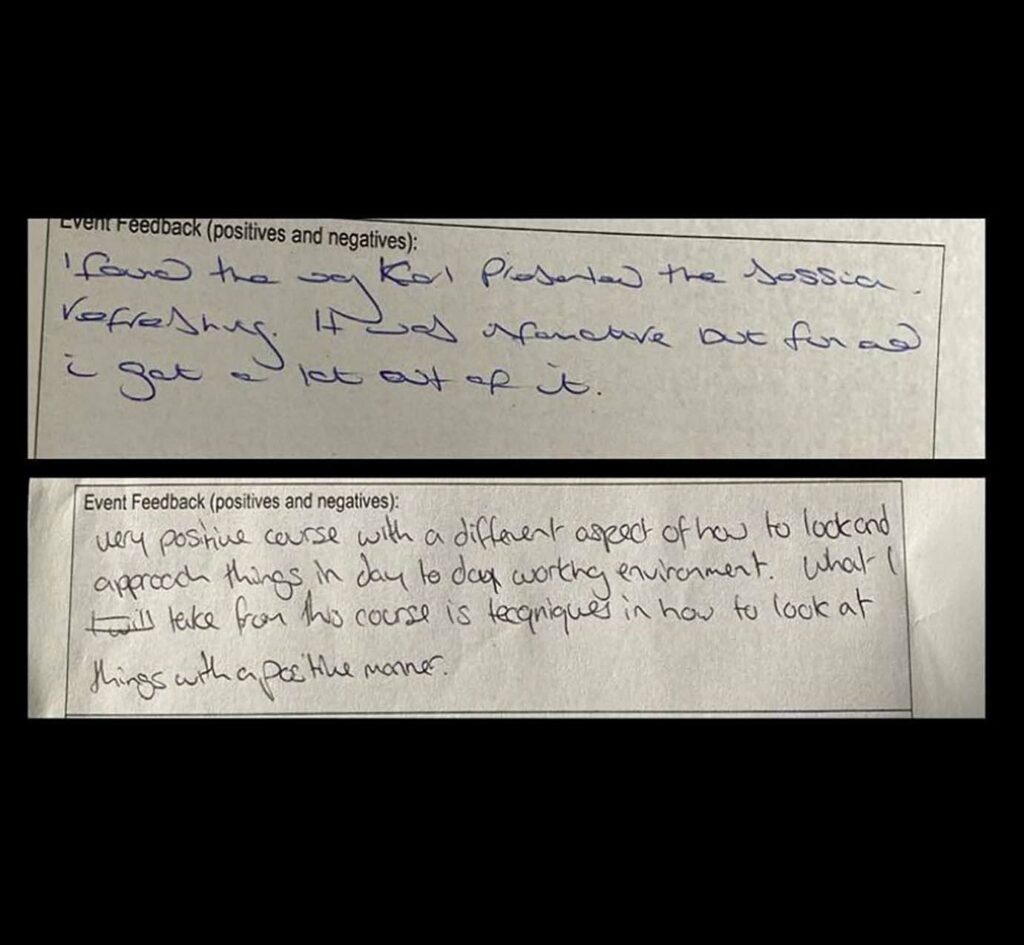 Event Feedback (positives and negatives):
I found the way Karl Presented the session
refreshing. It was informative but fun and
i got a lot out of it.
Event Feedback (positives and negatives):
very positive course with a different aspect of how to look and
approach things in day to day working environment. What I
I will take from this course is tecqniques in how to look at
things with a positive manner.